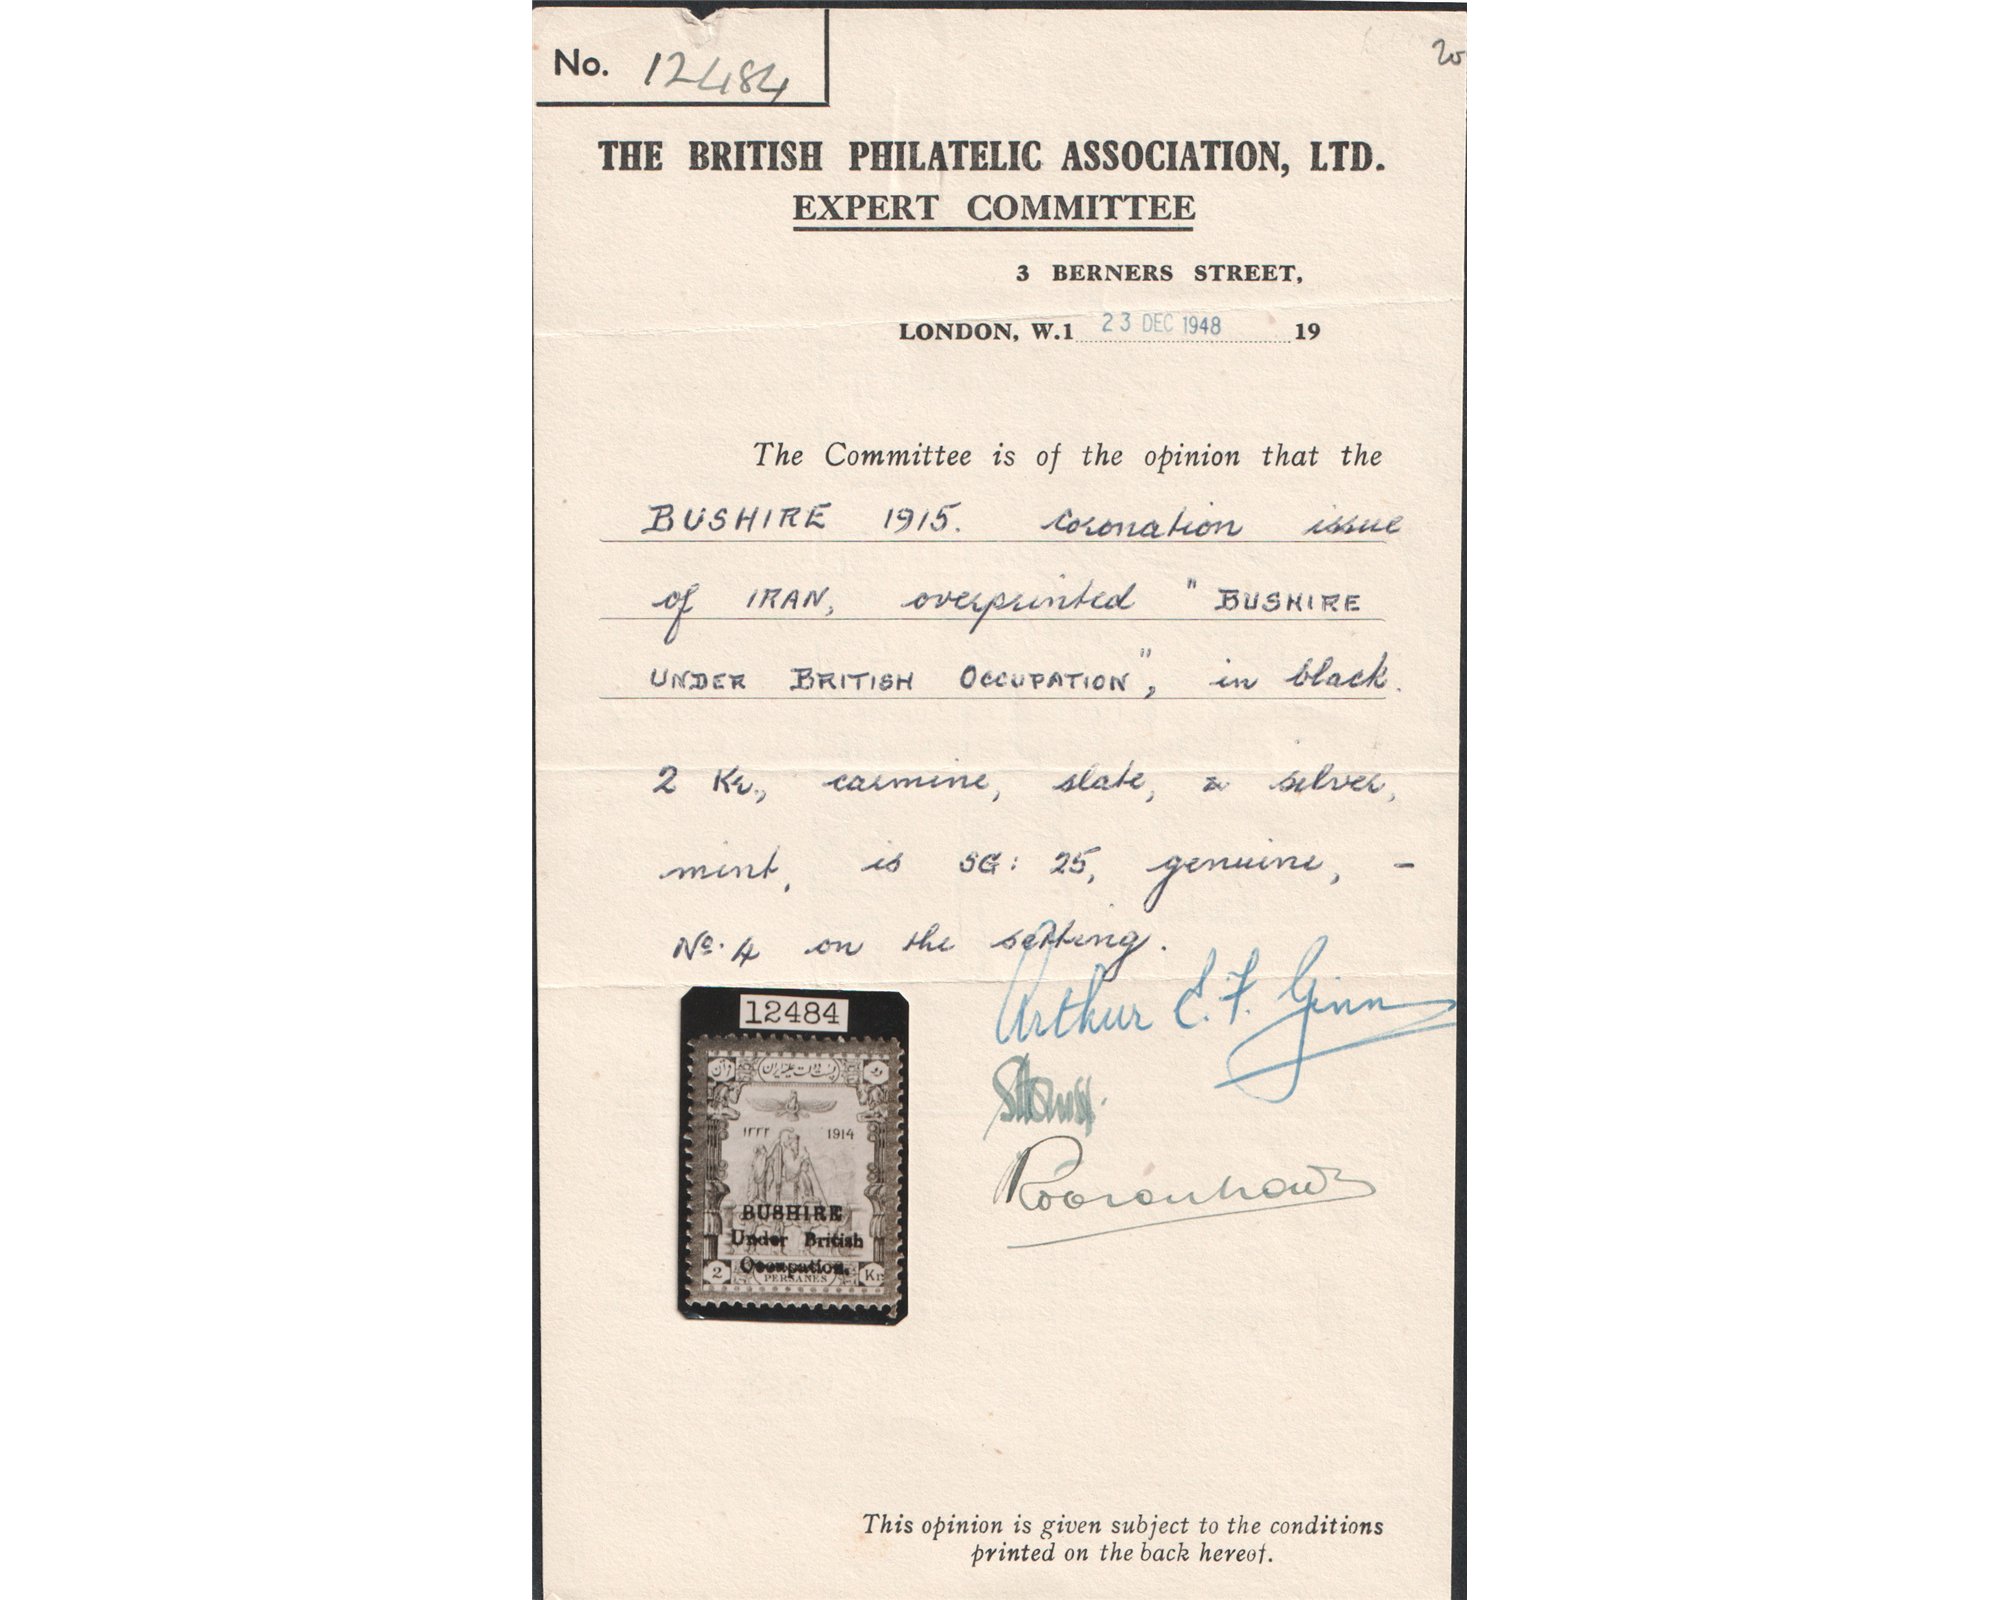 No. 12484
20
THE BRITISH PHILATELIC ASSOCIATION, LTD.
EXPERT COMMITTEE
3 BERNERS STREET,
LONDON, W.1 23 DEC 1948 19
The Committee is of the opinion that the
BUSHIRE 1915. Coronation issue
of IRAN, overprinted "BUSHIRE
UNDER BRITISH OCCUPATION", in black.
2 Kr., carmine, slate, & silver,
mint, is SG: 25, genuine, –
No. 4 on the setting.
Arthur E. F. Ginn
12484
قران
پست دولت علیه ایران
۱۳۳۳ 1914
BUSHIRE
Under British
Occupation.
2 PERSANES Kr
This opinion is given subject to the conditions
printed on the back hereof.